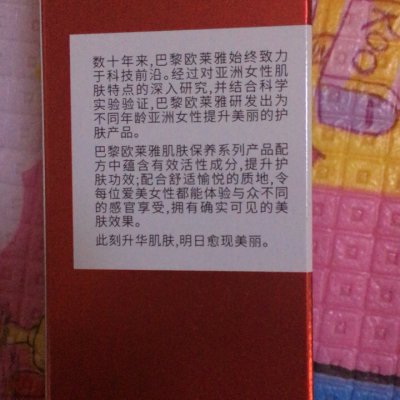 数十年来,巴黎欧莱雅始终致力
于科技前沿。经过对亚洲女性肌
肤特点的深入研究,并结合科学
实验验证,巴黎欧莱雅研发出为
不同年龄亚洲女性提升美丽的护
肤产品。
巴黎欧莱雅肌肤保养系列产品配
方中蕴含有效活性成分,提升护
肤功效;配合舒适愉悦的质地,令
每位爱美女性都能体验与众不同
的感官享受,拥有确实可见的美
肤效果。
此刻升华肌肤,明日愈现美丽。